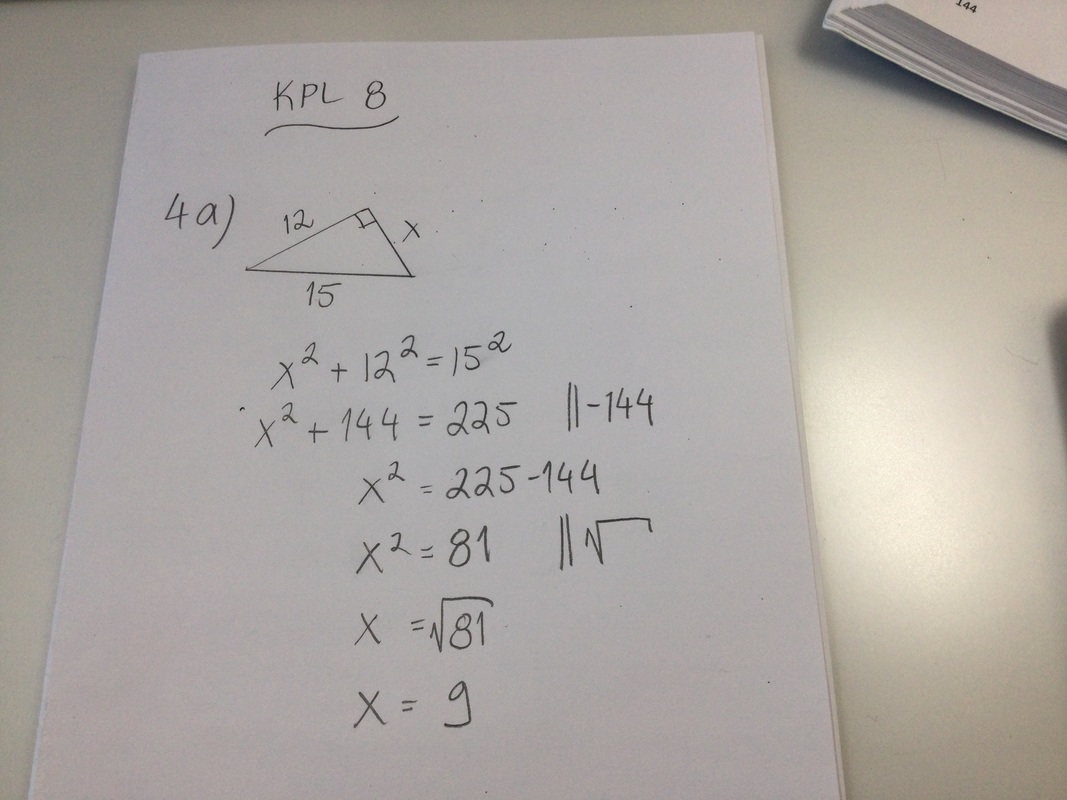 144
KPL 8
4a)
12
x
15
x² + 12² = 15²
x² + 144 = 225 ||-144
x² = 225-144
x² = 81 ||√
x = √81
x = 9